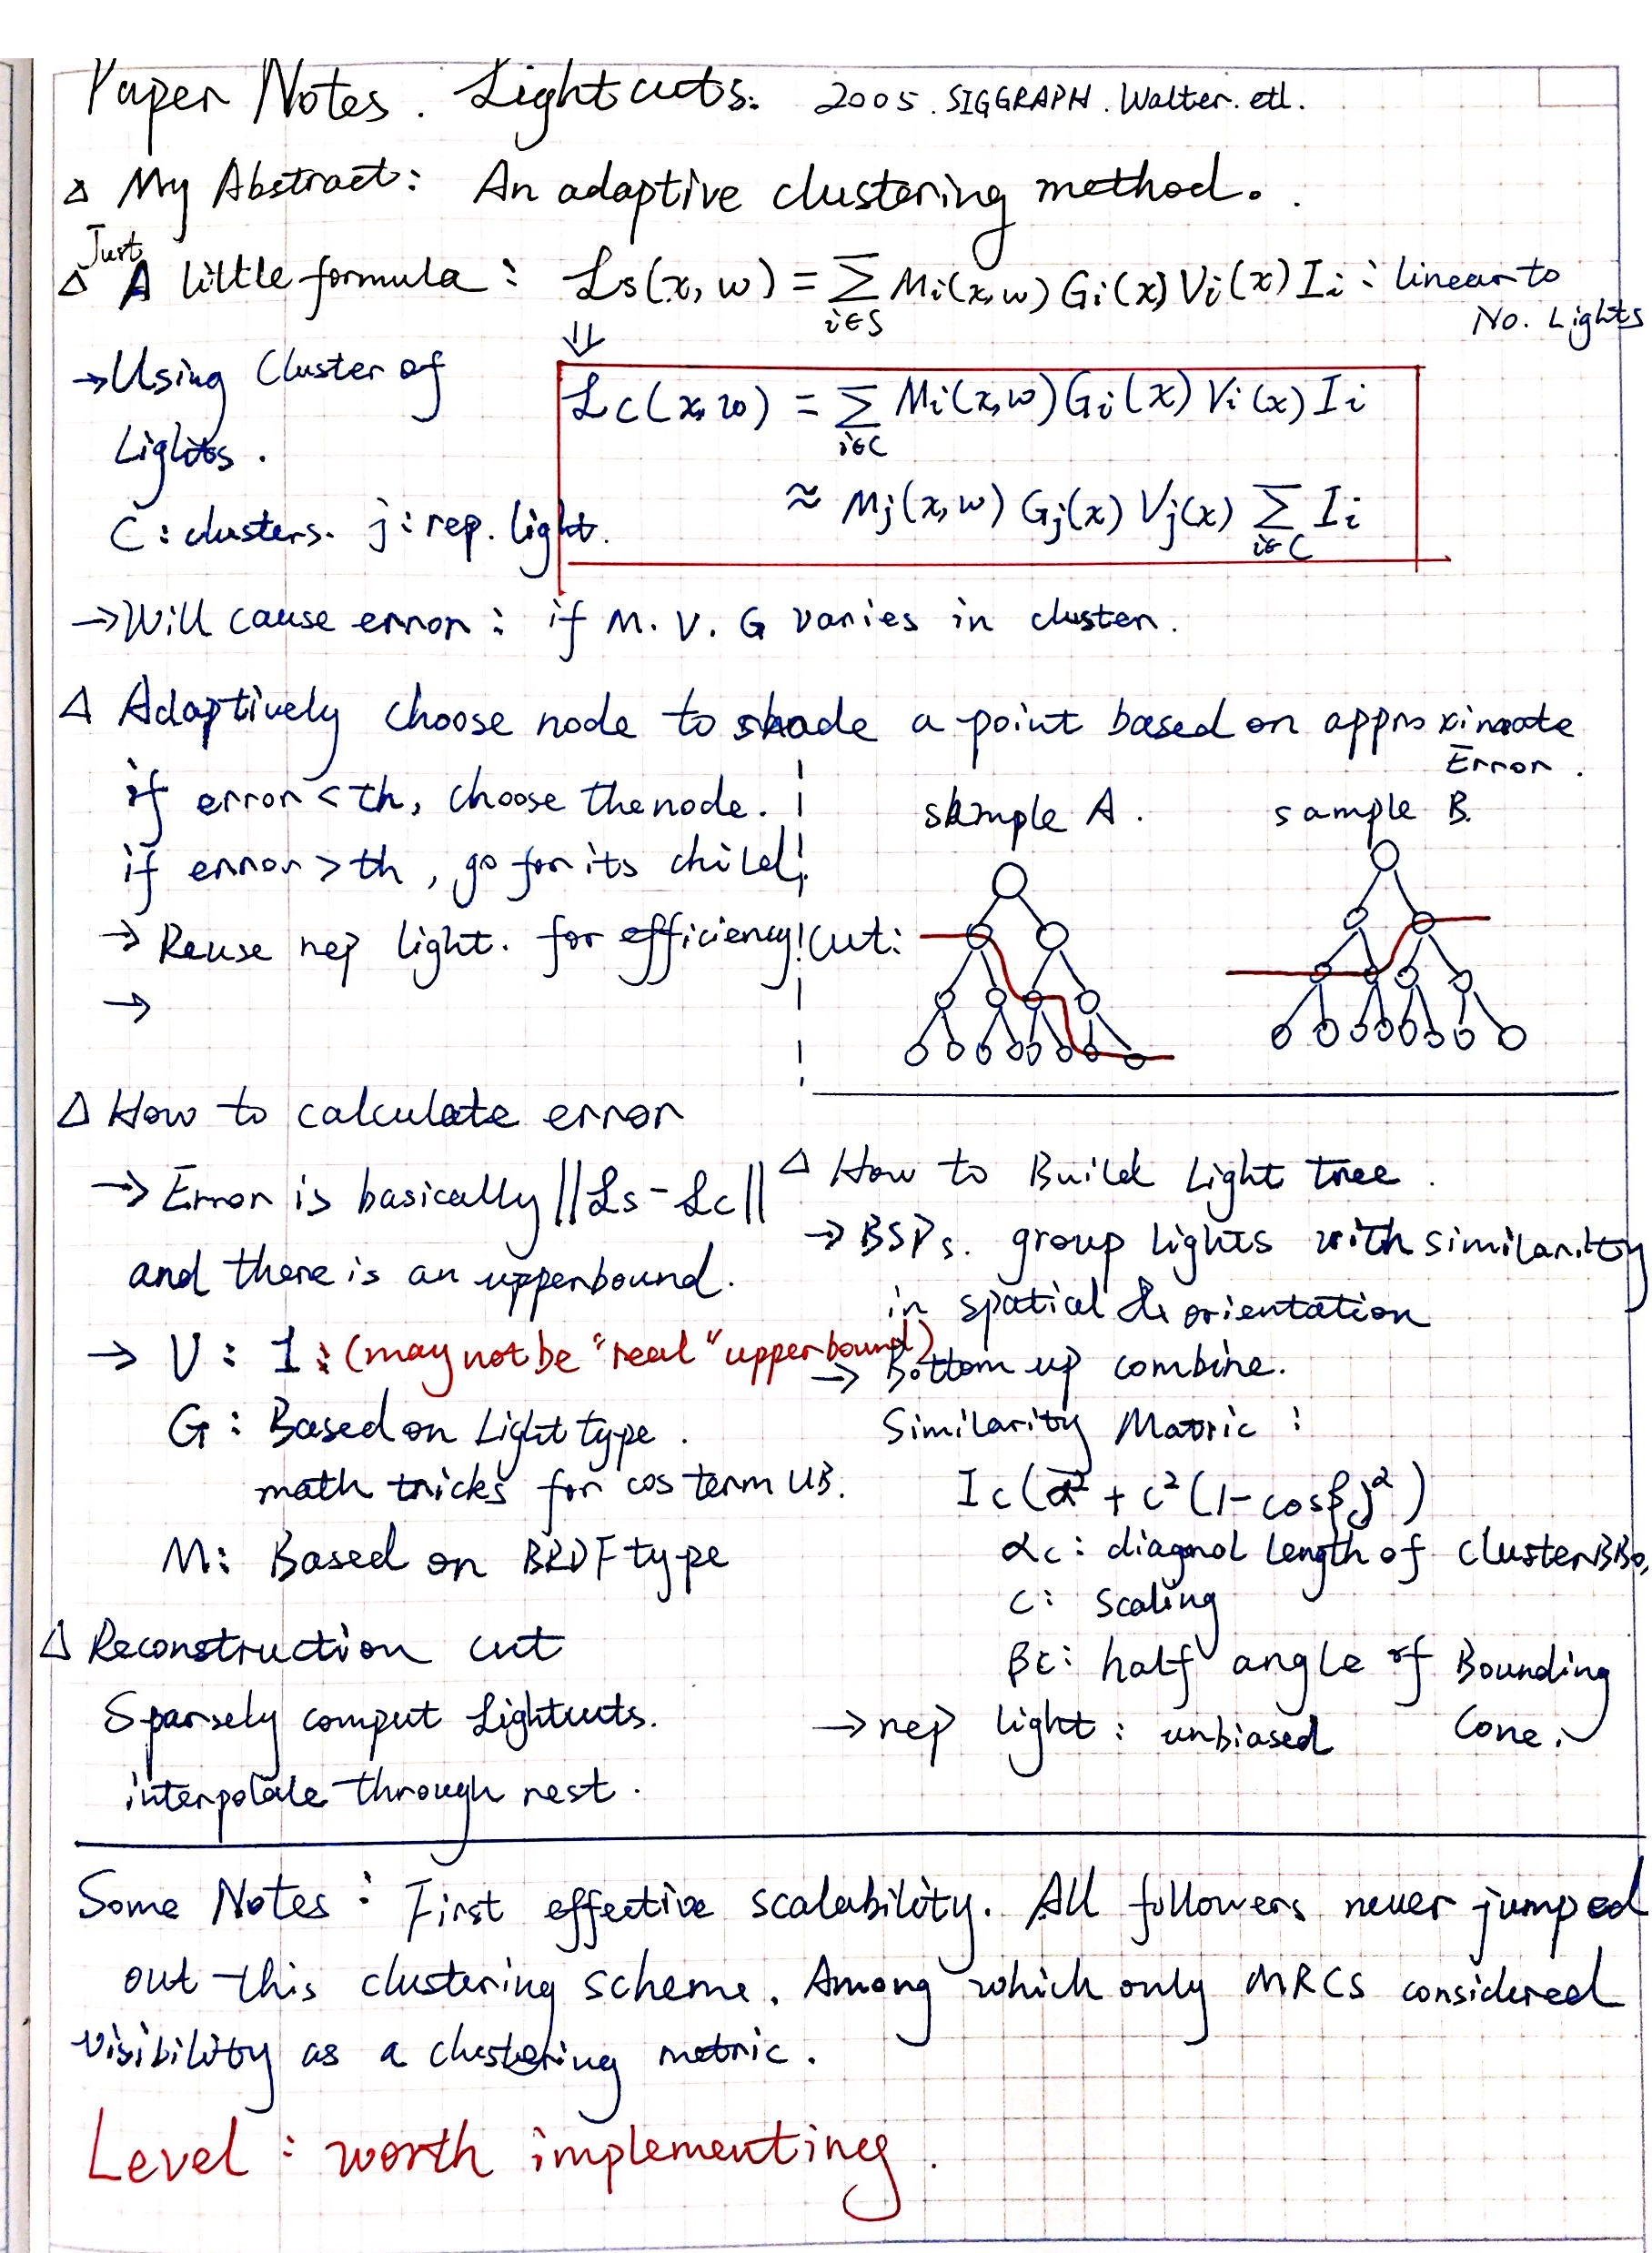 Paper Notes. Lightcuts. 2005. SIGGRAPH. Walter. etl.
△ My Abstract: An adaptive clustering method.
△ Just A little formula: Ls(x, w) = Σ_{i∈S} Mi(x,w) Gi(x) Vi(x) Ii : linear to
No. Lights
⇓
→ Using Cluster of
Lights.
C: clusters. j: rep. light.
Lc(x,w) = Σ_{i∈C} Mi(x,w) Gi(x) Vi(x) Ii
≈ Mj(x,w) Gj(x) Vj(x) Σ_{i∈C} Ii
→ Will cause error: if M. V. G varies in cluster.
△ Adaptively choose node to shade a point based on approximate
Error.
if error < th, choose the node.
if error > th, go for its child.
→ Reuse rep light. for efficiency
→
sample A.
sample B.
cut:
△ How to calculate error
→ Error is basically ||Ls - Lc||
and there is an upperbound.
→ V: 1: (may not be "real" upperbound)
G: Based on Light type.
math tricks for cos term UB.
M: Based on BRDF type
△ Reconstruction cut
Sparsely comput Lightcuts.
interpolate through rest.
△ How to Build Light tree.
→ BSPs. group lights with similarity
in spatial & orientation
→ Bottom up combine.
Similarity Matric:
Ic(α² + c²(1-cosβ)²)
αc: diagonal length of cluster BBo,
c: scaling
βc: half angle of Bounding
Cone.
→ rep light: unbiased
Some Notes: First effective scalability. All followers never jumped
out this clustering scheme. Among which only MRCS considered
visibility as a clustering metric.
Level: worth implementing.